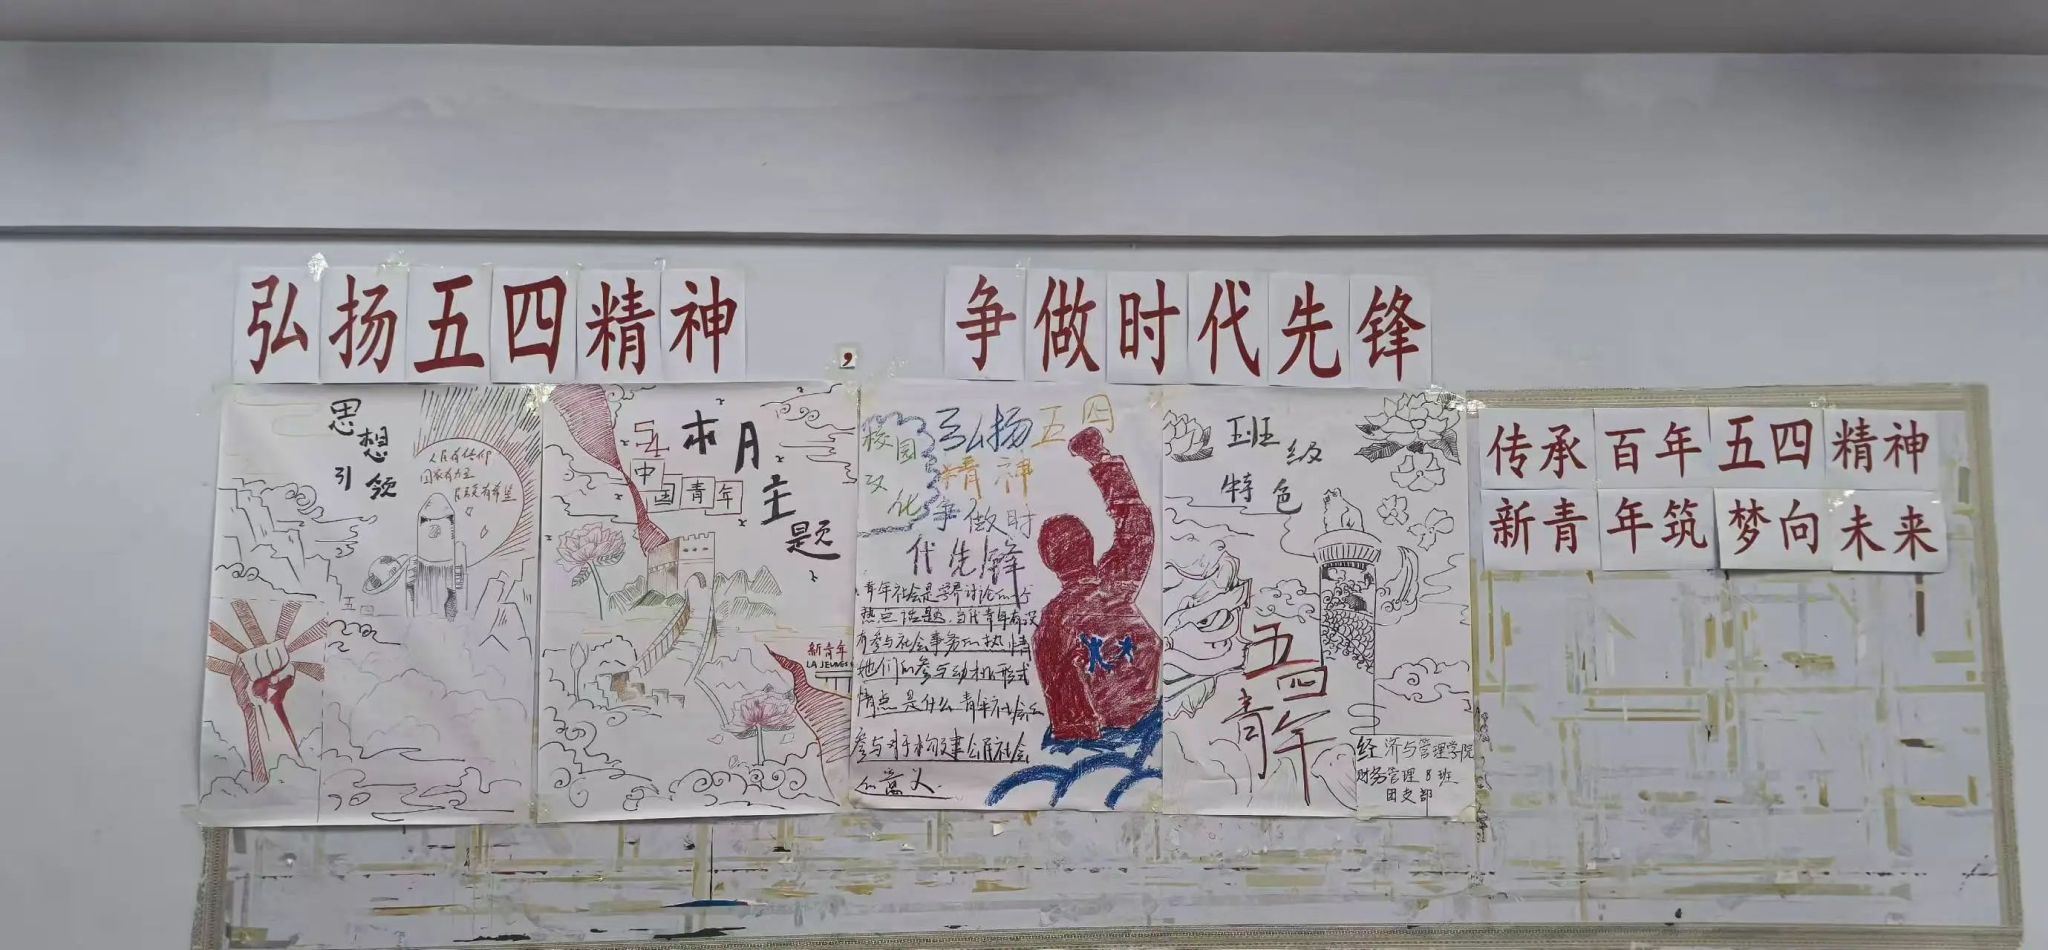 弘扬五四精神
,
争做时代先锋
思想
引领
人民有信仰
国家有力量
民族有希望
五四
54
中国青年
本月主题
新青年
LA JEUNES
校园
文化
弘扬五四
精神
争做时
代先锋
青年社会是学界讨论的一个
热点话题,当代青年有没
有参与社会事务的热情
她们的参与动机形式
特点是什么青年社会
参与对于构建公民社会
的意义.
班级
特色
五四
青年
经济与管理学院
财务管理8班
团支部
传承百年五四精神
新青年筑梦向未来